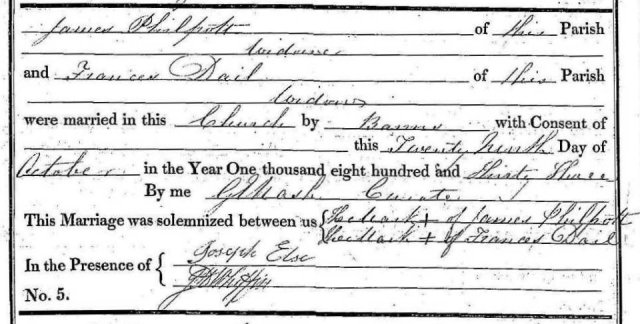 James Philpott of this Parish
Widower
and Frances Dail of this Parish
Widow
were married in this Church by Banns with Consent of
this Twenty Ninth Day of
October in the Year One thousand eight hundred and Thirty Three
By me G Nash Curate
This Marriage was solemnized between us { The Mark + of James Philpott
The Mark + of Frances Dail
In the Presence of { Joseph Else
No. 5.